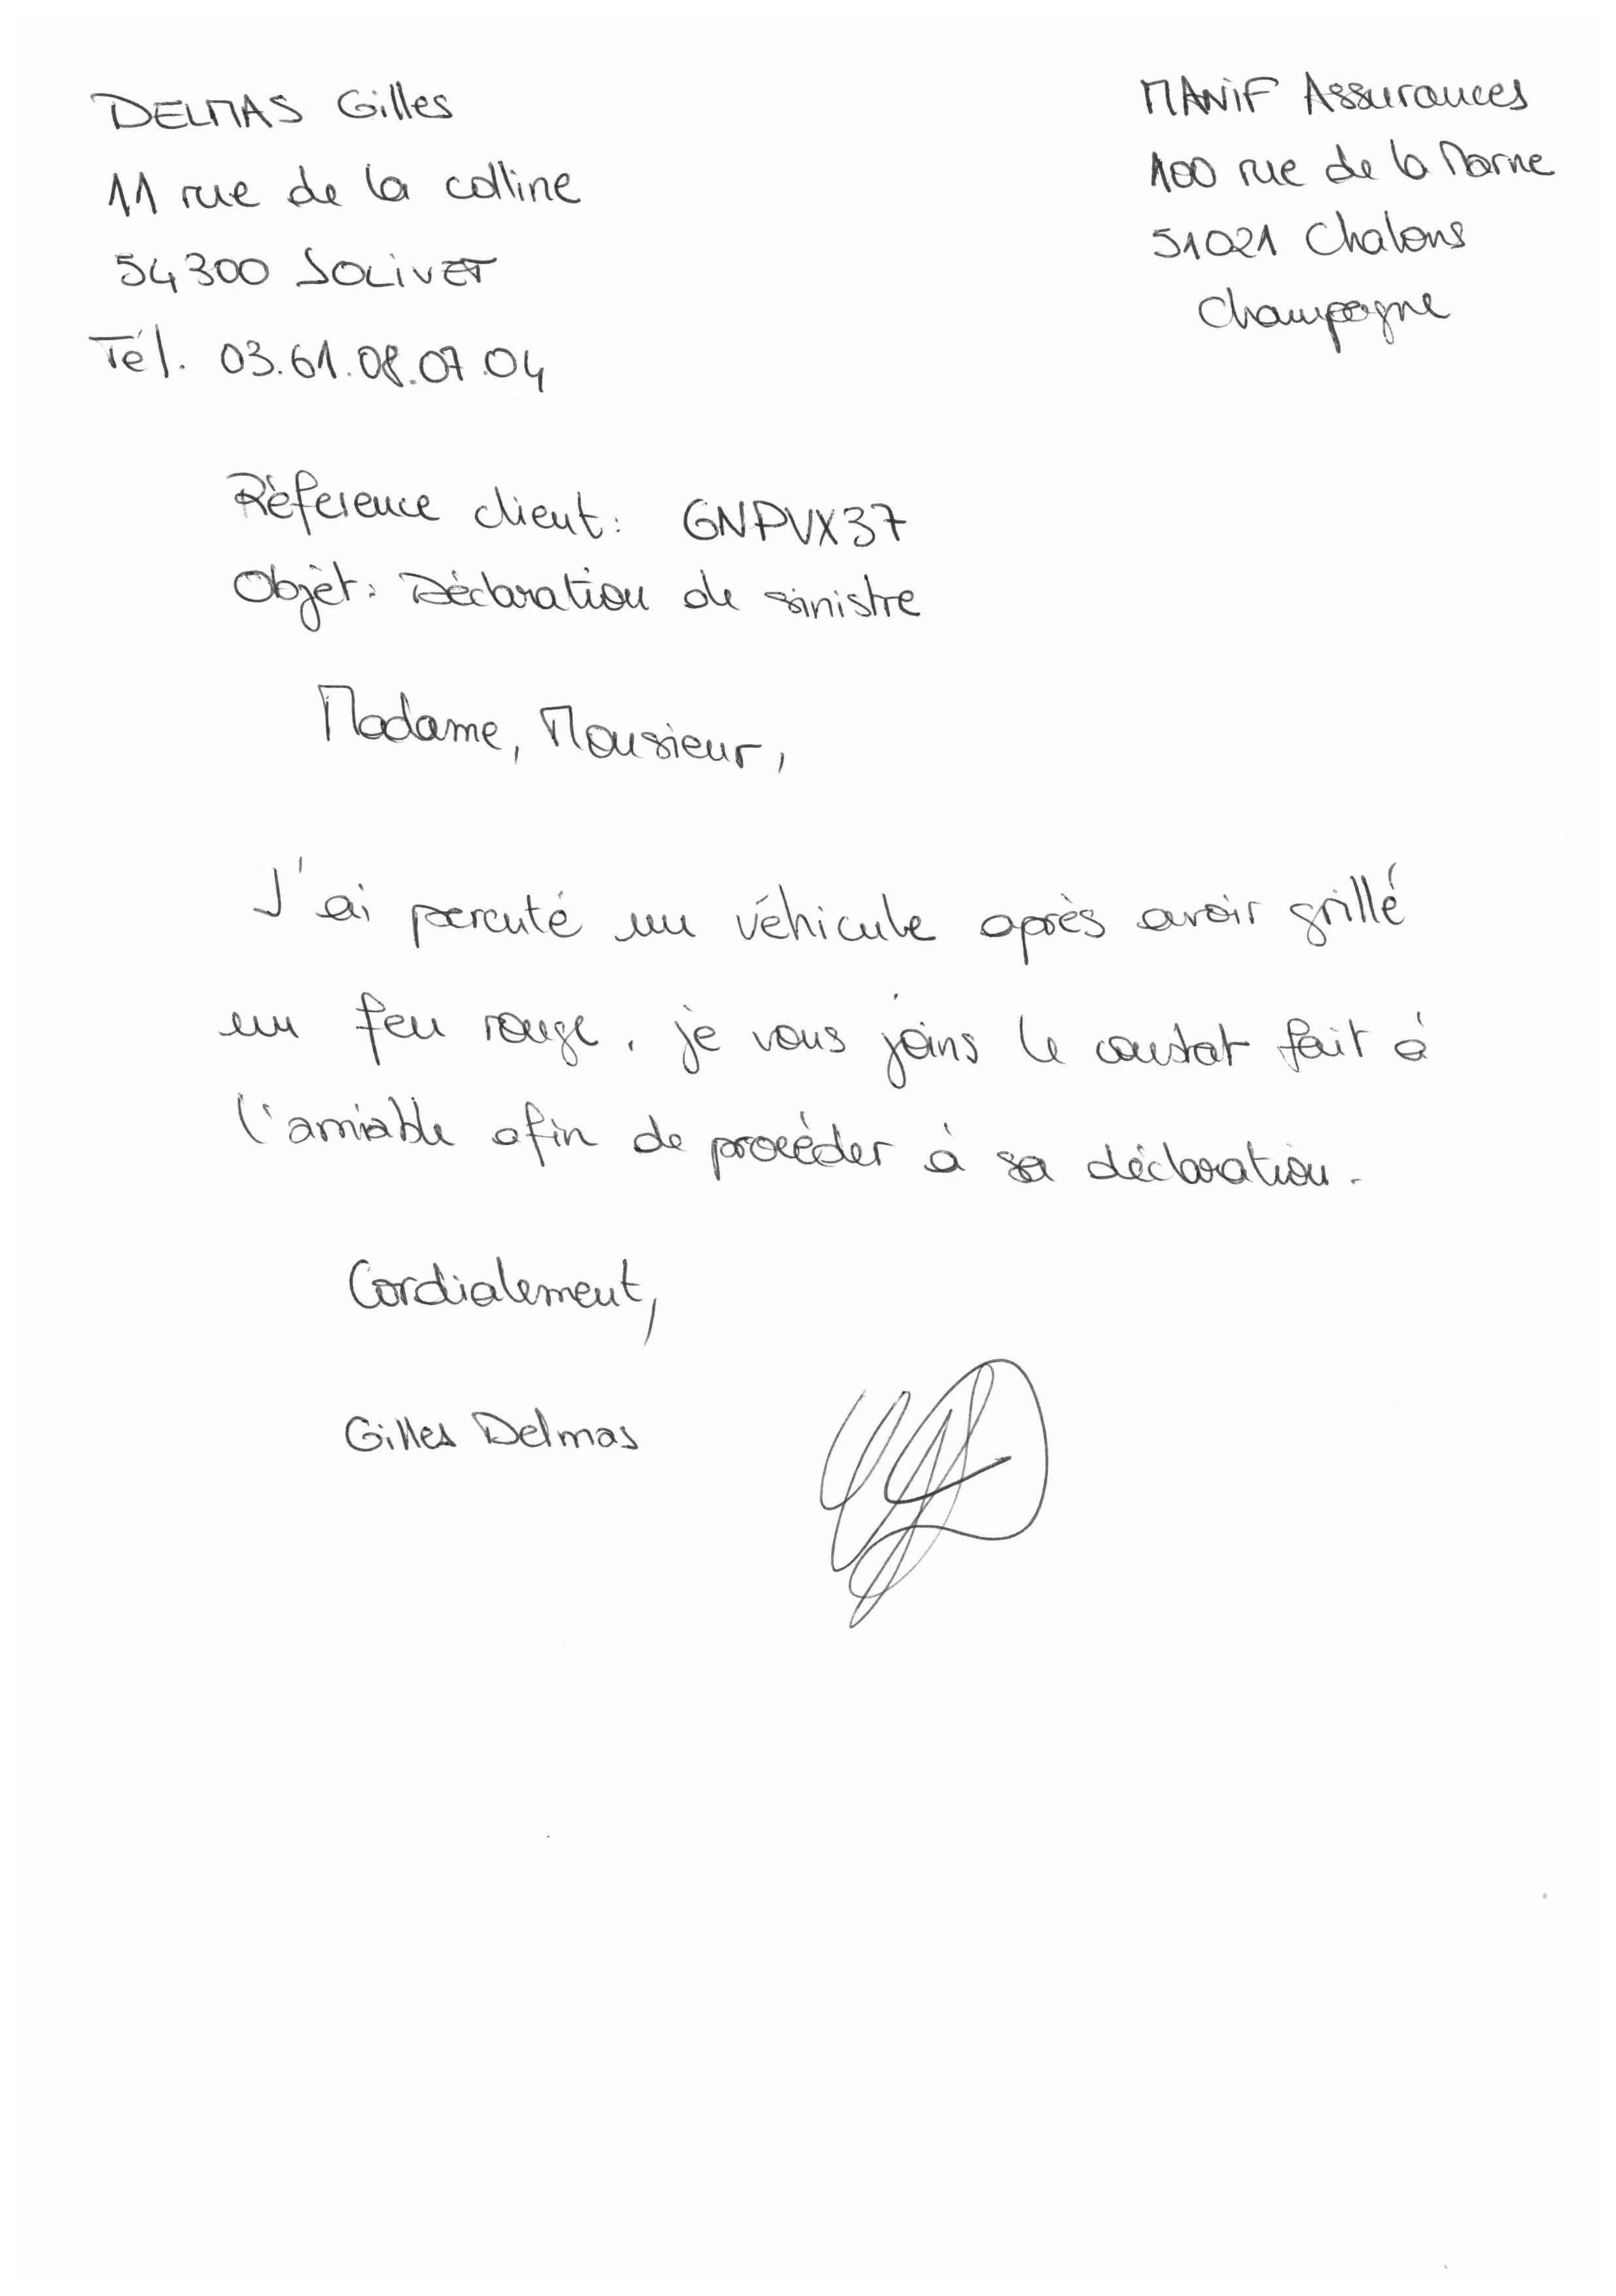 DELMAS Gilles
11 rue de la colline
54300 JOLIVET
Tél. 03.61.08.07.04
MANiF Assurances
100 rue de la Marne
51021 Chalons
Champagne
Réference client: GNPVX37
Objèt: Déclaration de sinistre
Madame, Monsieur,
J'ai percuté un véhicule après avoir grillé
un feu rouge. je vous joins le constat fait à
l'amiable afin de procéder à sa déclaration.
Cordialement,
Gilles Delmas